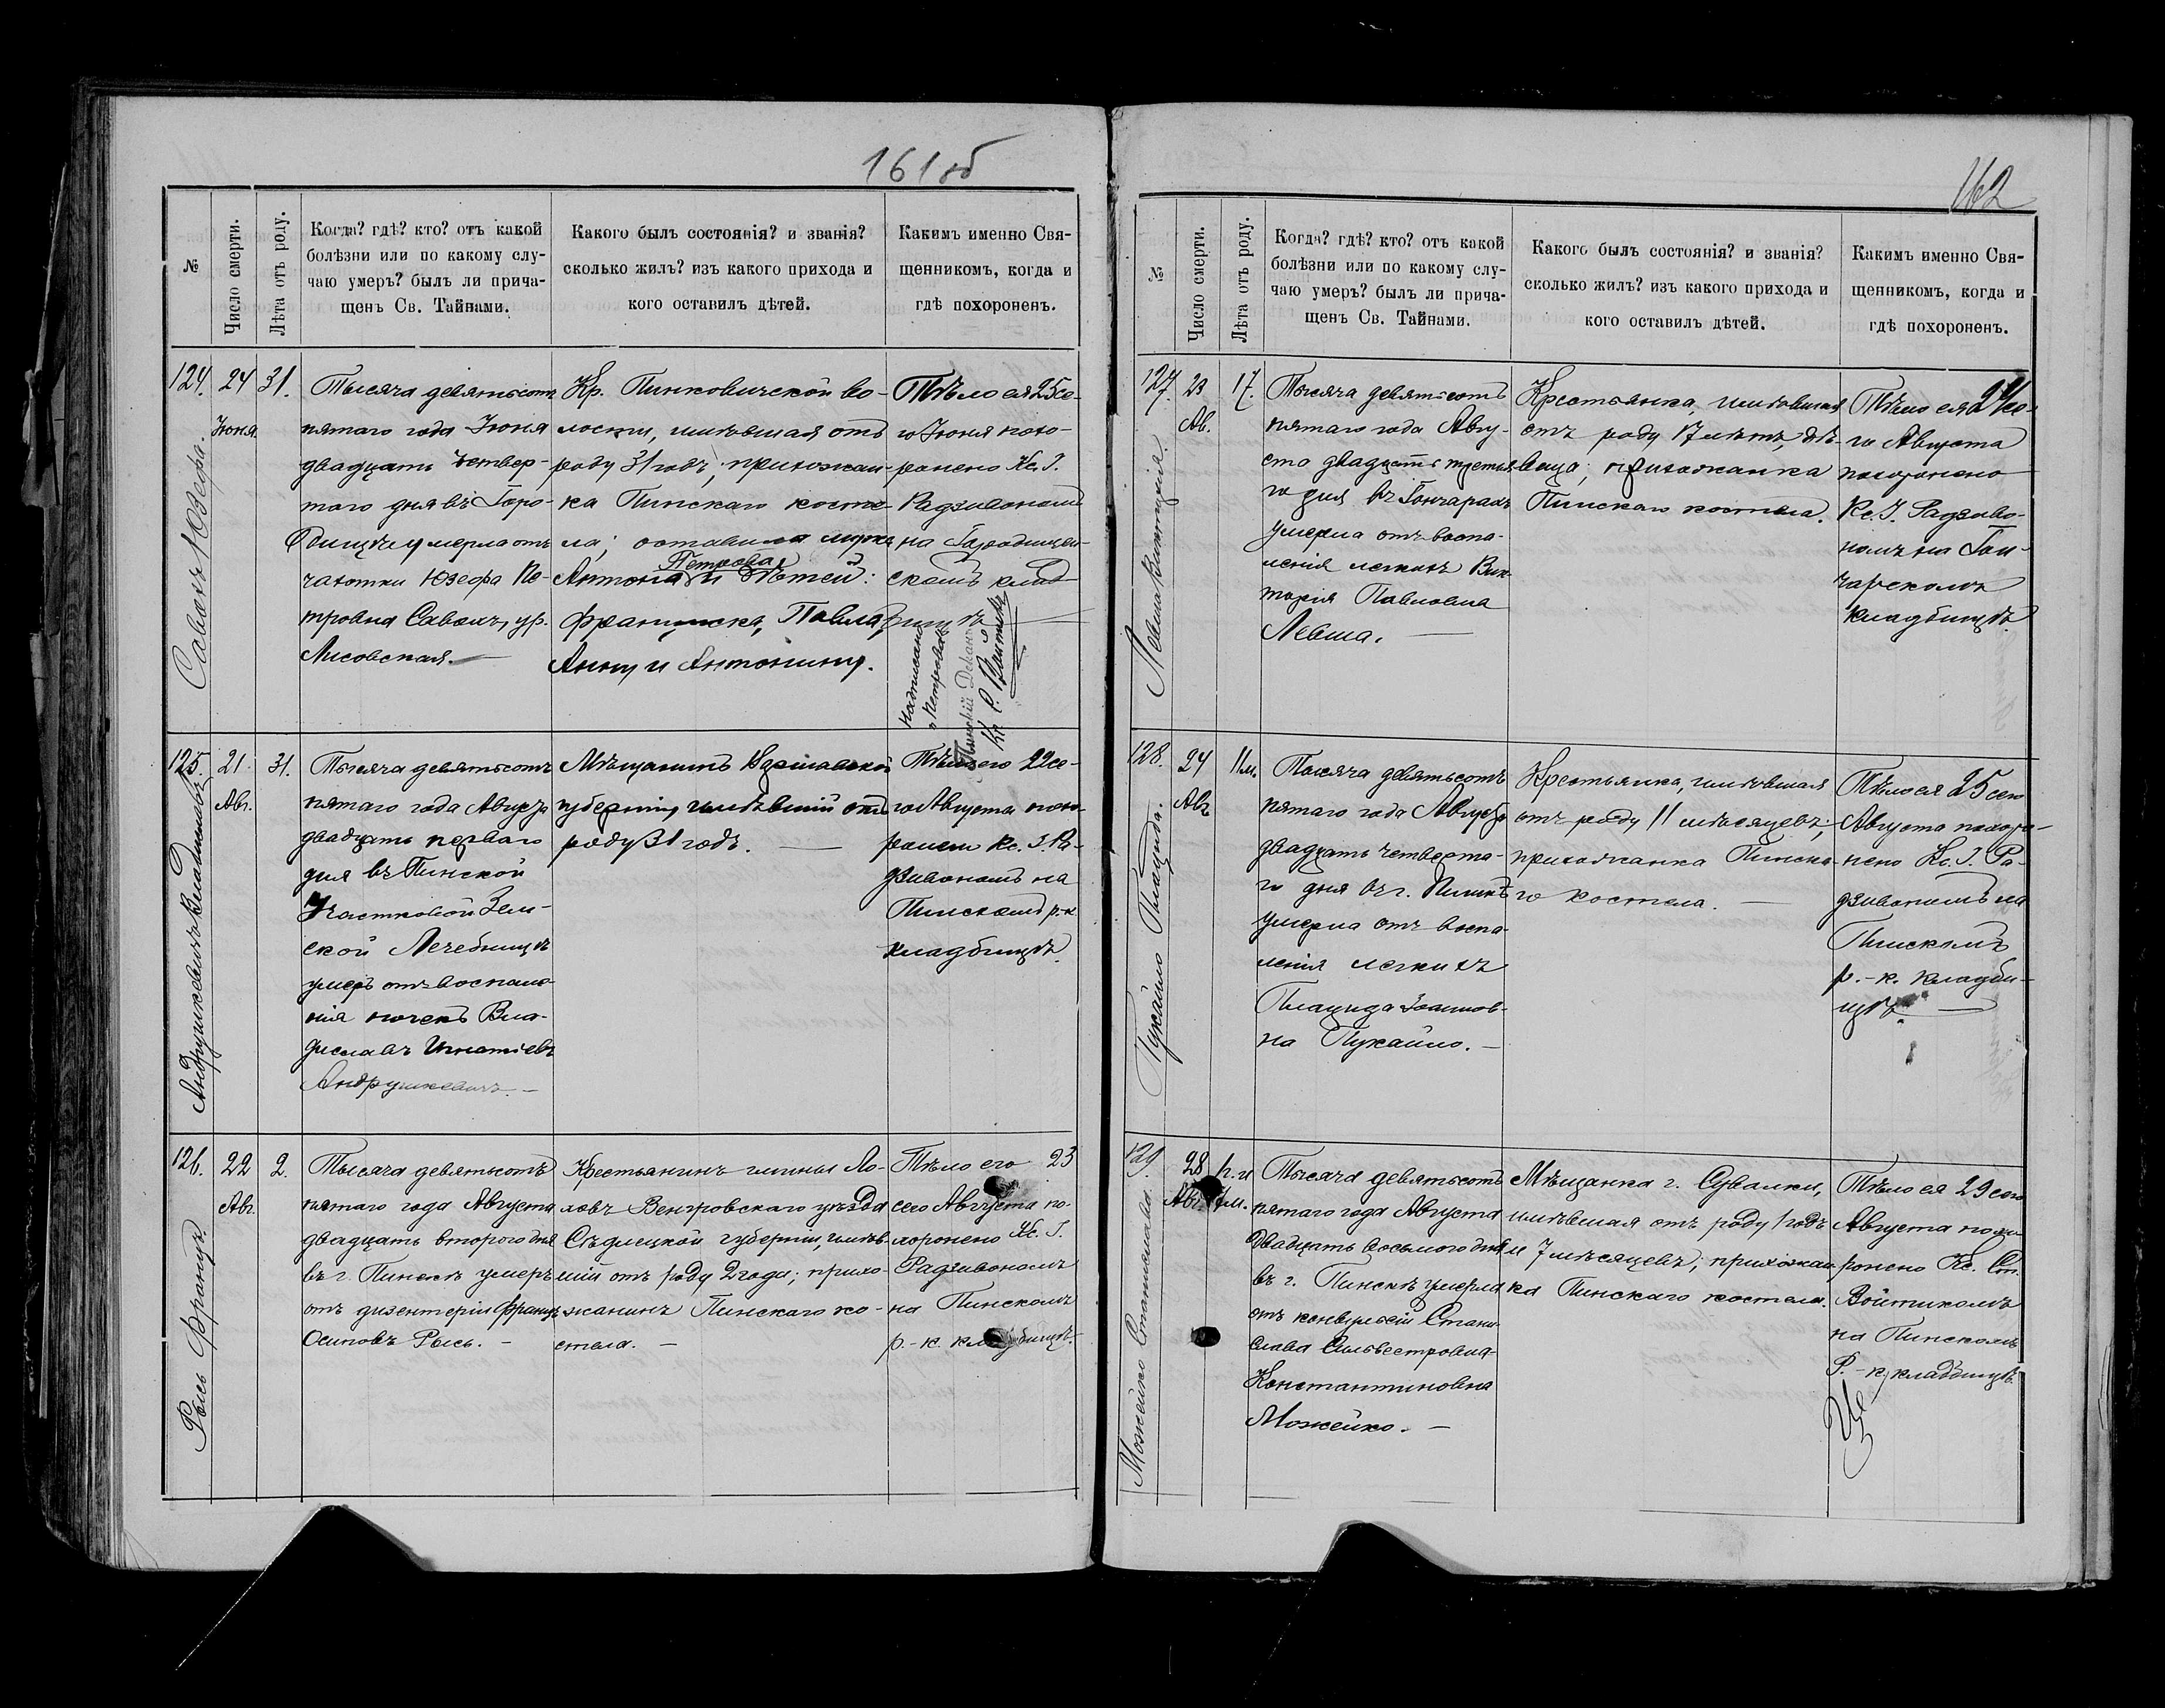 161 об
№
Число смерти.
Лѣта отъ роду.
Когда? гдѣ? кто? отъ какой
болѣзни или по какому слу-
чаю умеръ? былъ ли прича-
щенъ Св. Тайнами.
Какого былъ состоянія? и званія?
сколько жилъ? изъ какого прихода и
кого оставилъ дѣтей.
Какимъ именно Свя-
щенникомъ, когда и
гдѣ похороненъ.
124.
Савохъ Юзефа.
24
Іюня.
31.
Тысяча девятьсотъ
пятаго года Іюня
двадцать четвер-
таго дня въ Горо-
дищѣ умерла отъ
чахотки Юзефа Пе-
тровна Савохъ, ур.
Лисовская.
Кр. Пинковичской во-
лости, имѣвшая отъ
роду 31 годъ; прихожан-
ка Пинскаго косте-
ла; оставила мужа
Петрова
Антона и дѣтей:
Франциска, Павла,
Анну и Антонину.
Тѣло ея 25 се-
го Іюня похо-
ронено Кс. І.
Радзивономъ
на Городищен-
скомъ клад-
бищѣ
Надписано
„Петрова“
Пинскій Деканъ
125.
Андрушкевичъ Владиславъ
21
Авг.
31.
Тысяча девятьсотъ
пятаго года Августа
двадцать перваго
дня въ Пинской
Участковой Зем-
ской Лечебницѣ
умеръ отъ воспале-
нія почекъ Вла-
диславъ Игнатіевъ
Андрушкевичъ. —
Мѣщанинъ Варшавской
губерніи, имѣвшій отъ
роду 31 годъ. —
Тѣло его 22 се-
го Августа похо-
ронено Кс. І. Ра-
дзивономъ на
Пинскомъ р.-к
кладбищѣ.
126.
Рысь Францъ
22
Авг.
2.
Тысяча девятьсотъ
пятаго года Августа
двадцать второго дня
въ г. Пинскѣ умеръ
отъ дизентеріи Францъ
Осиповъ Рысь. —
Крестьянинъ гмины Ло-
ховъ Венгровскаго уѣзда
Сѣдлецкой губерніи, имѣв-
шій отъ роду 2 года; прихо-
жанинъ Пинскаго ко-
стела. —
Тѣло его 23
сего Августа по-
хоронено Кс. І.
Радзивономъ
на Пинскомъ
р.-к. кладбищѣ.
162
№
Число смерти.
Лѣта отъ роду.
Когда? гдѣ? кто? отъ какой
болѣзни или по какому слу-
чаю умеръ? былъ ли прича-
щенъ Св. Тайнами.
Какого былъ состоянія? и званія?
сколько жилъ? изъ какого прихода и
кого оставилъ дѣтей.
Какимъ именно Свя-
щенникомъ, когда и
гдѣ похороненъ.
127.
Левша
23
Ав.
17.
Тысяча девятьсотъ
пятаго года Авгу-
ста двадцать третья-
го дня въ Гончарахъ
умерла отъ воспа-
ленія легкихъ Вик-
торія Павловна
Левша. —
Крестьянка, имѣвшая
отъ роду 17 лѣтъ, дѣ-
вица; прихожанка
Пинскаго костела.
Тѣло ея 24 се-
го Августа
похоронено
Кс. І. Радзиво-
номъ на Гон-
чарскомъ
кладбищѣ.
128.
Пукайло Плацида.
24
Авг
11 м.
Тысяча девятьсотъ
пятаго года Августа
двадцать четверта-
го дня въ г. Пинскѣ
умерла отъ воспа-
ленія легкихъ
Плацида Іоанов-
на Пукайло. —
Крестьянка, имѣвшая
отъ роду 11 мѣсяцевъ;
прихожанка Пинска-
го костела. —
Тѣло ея 25 сего
Августа похоро-
нено Кс. І. Ра-
дзивономъ на
Пинскомъ
р.-к. кладби-
щѣ. —
129.
Можейко Станислава.
28
Авг.
1 г. и
7 м.
Тысяча девятьсотъ
пятаго года Августа
двадцать восьмого дня
въ г. Пинскѣ умерла
отъ конвульсій Стани-
слава Сильвестровна-
Константиновна
Можейко. —
Мѣщанка г. Сувалки,
имѣвшая отъ роду 1 годъ
и 7 мѣсяцевъ; прихожан-
ка Пинскаго костела.
Тѣло ея 29 сего
Августа похо-
ронено Кс. Ст.
Войтикомъ
на Пинскомъ
Р.-к. кладбищѣ.